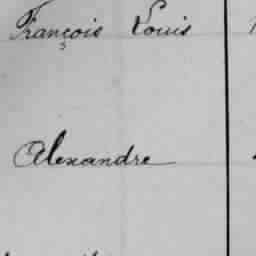 François Louis
Alexandre